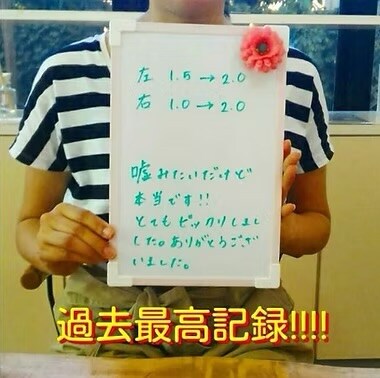 左 1.5→2.0
右 1.0→2.0
嘘みたいだけど
本当です!!
とてもビックリしまし
した。ありがとうござ
いました。
過去最高記録!!!!